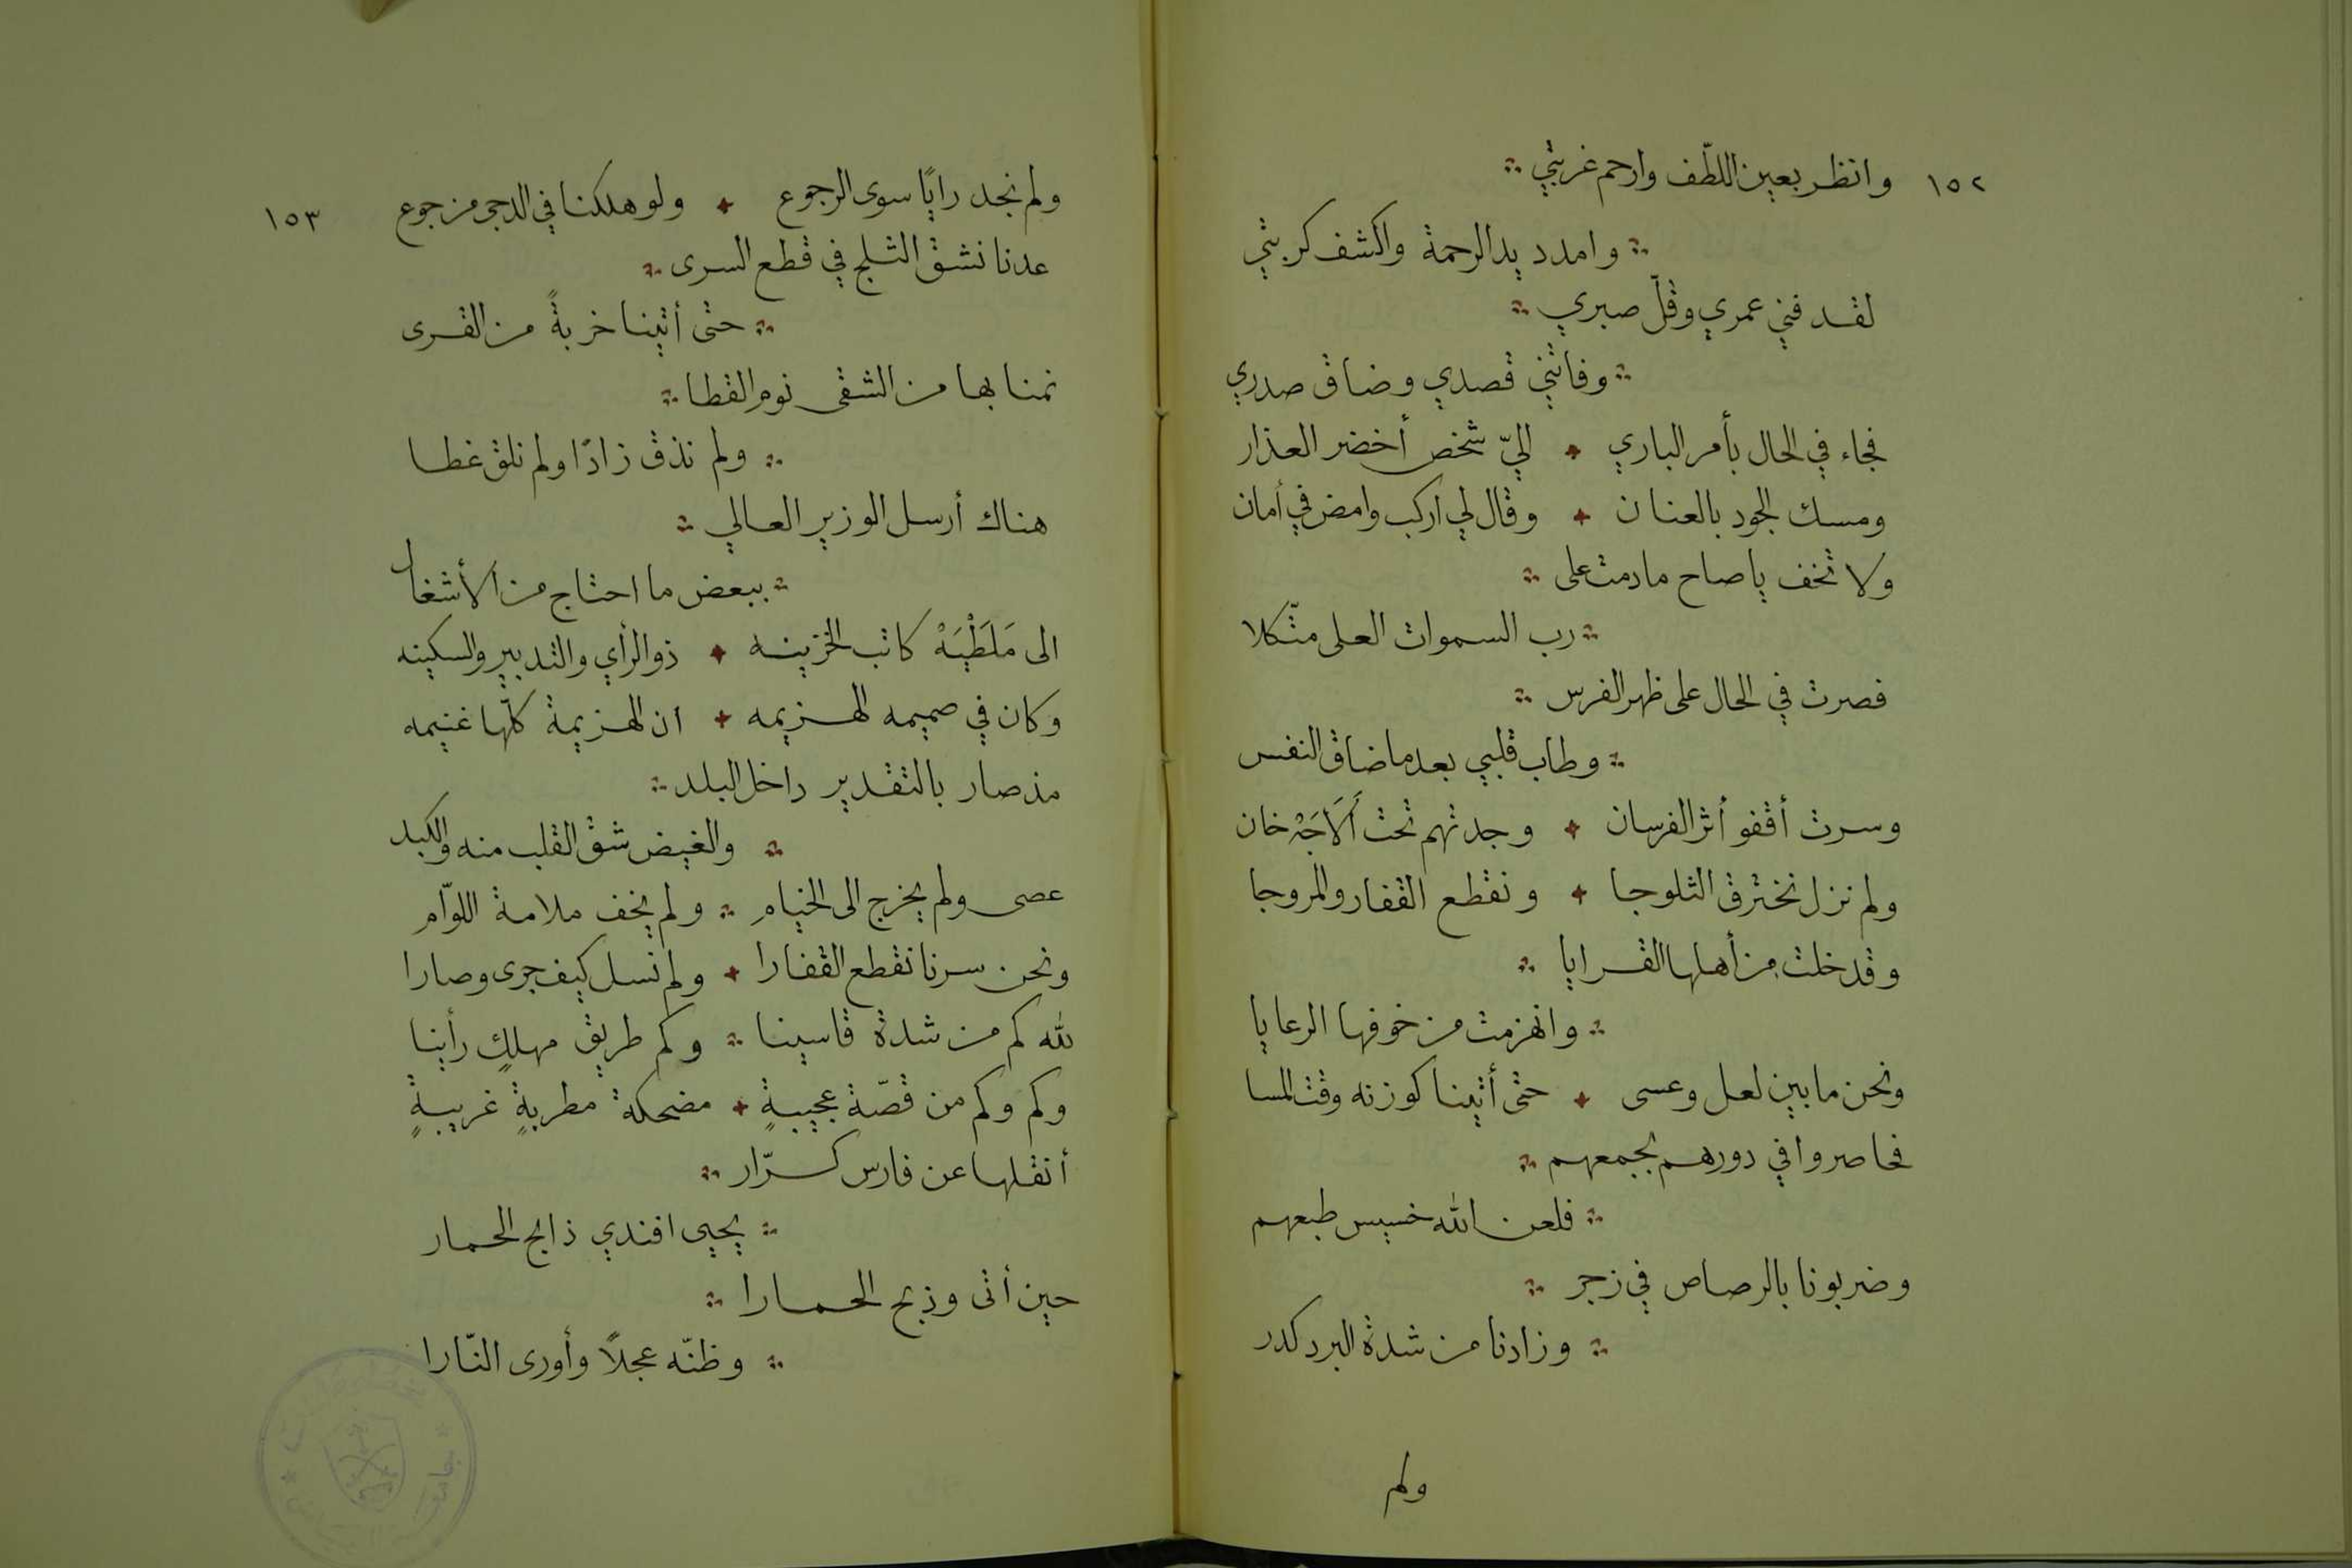 ١٥٢
وانظر بعين اللطّف وارحم غربتي
وامدد يد الرحمة واكشف كربتي
لقد فني عمري وقلّ صبري
وفاتني قصدي وضاق صدري
فجاء في الحال بأمر الباري ✦ اليّ شخص أخضر العذار
ومسك الجود بالعنان ✦ وقال لي اركب وامض في أمان
ولا تخف ياصاح مادمت على
رب السموات العلى متّكلا
فصرت في الحال على ظهر الفرس
وطاب قلبي بعد ما ضاق النفس
وسرت أقفو أثر الفرسان ✦ وجدتهم تحت أَلَاجَهْ خان
ولم نزل نخترق الثلوجا ✦ ونقطع القفار والمروجا
وقد خلت من أهلها القرايا
وانهزمت من خوفها الرعايا
ونحن مابين لعل وعسى ✦ حتى أتينا كوزته وقت المسا
فحاصروا في دورهم بجمعهم
فلعن الله خسيس طبعهم
وضربونا بالرصاص في زجر
وزادنا من شدة البرد كدر
ولم
١٥٣
ولم نجد رايًا سوى الرجوع ✦ ولو هلكنا في الدجى من جوع
عدنا نشق الثلج في قطع السرى
حتى أتينا خربةً من القرى
نمنا بها من الشقى نوم القطا
ولم نذق زادًا ولم نلق غطا
هناك أرسل الوزير العالي
ببعض ما احتاج من الأشغال
الى مَلَطْيَهْ كاتب الخزينه ✦ ذو الرأي والتدبير والسكينه
وكان في صميمه الهزيمه ✦ ان الهزيمة كلّها غنيمه
مذ صار بالتقدير داخل البلد
والغيض شق القلب منه والكبد
عصى ولم يخرج الى الخيام ولم يخف ملامة اللوّام
ونحن سرنا نقطع القفارا ✦ ولم نسل كيف جرى وصارا
لله كم من شدة قاسينا وكم طريق مهلكٍ رأينا
وكم وكم من قصّة عجيبةٍ ✦ مضحكة مطربةٍ غريبةٍ
أنقلها عن فارس كرّار
يحيى افندي ذابح الحمار
حين أتى وذبح الحمارا
وظنّه عجلاً وأورى النّارا